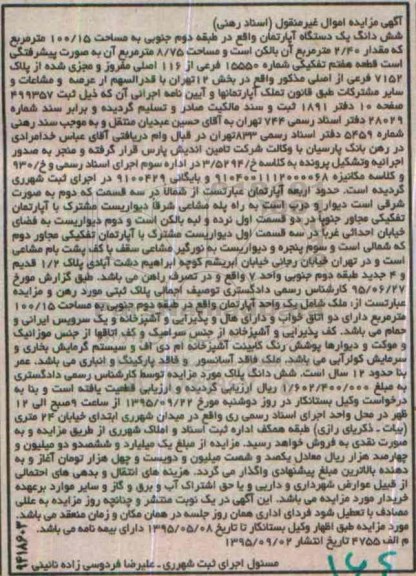 آگهی مزایده اموال غیرمنقول (اسناد رهنی)
شش دانگ یک دستگاه آپارتمان واقع در طبقه دوم جنوبی به مساحت ۱۰۰/۱۵ مترمربع
که مقدار ۲/۴۰ مترمربع آن بالکن است و مساحت ۸/۷۵ مترمربع آن به صورت پیشرفتگی
است قطعه هفتم تفکیکی شماره ۱۵۵۵۰ فرعی از ۱۱۶ اصلی مفروز و مجزی شده از پلاک
۷۱۵۲ فرعی از اصلی مذکور واقع در بخش ۱۲ تهران با قدرالسهم از عرصه و مشاعات و
سایر مشترکات طبق قانون تملک آپارتمانها و آیین نامه اجرائی آن که ذیل ثبت ۴۹۹۳۵۷
صفحه ۱۰ دفتر ۱۸۹۱ ثبت و سند مالکیت صادر و تسلیم گردیده و برابر سند شماره
۲۸۰۲۹ دفتر اسناد رسمی ۷۴۴ تهران به آقای حسین عبدیان منتقل و به موجب سند رهنی
شماره ۵۴۵۹ دفتر اسناد رسمی ۸۳۳ تهران در قبال وام دریافتی آقای عباس خدامرادی
در رهن بانک پارسیان با وکالت شرکت تامین اندیش پارس قرار گرفته و منجر به صدور
اجرائیه وتشکیل پرونده به کلاسه ۳/۵۲۹۴/خ در اداره سوم اجرای اسناد رسمی و ۹۳۰/خ
و کلاسه مکانیزه ۹۱۰۴۰۰۱۱۱۲۰۰۰۰۶۸ و بایگانی ۹۱۰۰۴۲۹ در اجرای ثبت شهرری
گردیده است. حدود اربعه آپارتمان عبارتست از شمالا در سه قسمت که دوم به صورت
شرقی است دیوار و درب است به راه پله مشاعی شرقا دیواریست مشترک با آپارتمان
تفکیکی مجاور جنوبا در دو قسمت اول نرده و لبه بالکن است و دوم دیواریست به فضای
خیابان احداثی غربا در سه قسمت اول دیواریست مشترک با آپارتمان تفکیکی مجاور دوم
که شمالی است و سوم پنجره و دیواریست به نورگیر مشاعی سقف با کف پشت بام مشاعی
است و در تهران خیابان رجائی خیابان ابریشم کوچه ابراهیم دشت آبادی پلاک ۱/۲ قدیم
و ۴ جدید طبقه دوم جنوبی واحد ۷ واقع و در تصرف راهن می باشد. طبق گزارش مورخ
۹۵/۰۶/۲۷ کارشناس رسمی دادگستری توصیف اجمالی پلاک ثبتی مورد رهن و مزایده
عبارتست از، ملک شامل یک واحد آپارتمان واقع در طبقه دوم جنوبی به مساحت ۱۰۰/۱۵
مترمربع دارای دو اتاق خواب و دارای هال و پذیرایی و آشپزخانه و یک سرویس ایرانی و
حمام می باشد. کف پذیرایی و آشپزخانه از جنس سرامیک و کف اتاقها از جنس موزائیک
و موکت و دیوارها پوشش رنگ کابینت آشپزخانه ام دی اف و سیستم گرمایش بخاری و
سرمایش کولرآبی می باشد. ملک فاقد آسانسور و فاقد پارکینگ و انباری می باشد. عمر
بنا حدود ۱۲ سال است. شش دانگ پلاک مورد مزایده توسط کارشناس رسمی دادگستری
به مبلغ ۱/۶۰۲/۴۰۰/۰۰۰ ریال ارزیابی گردیده و ارزیابی قطعیت یافته است و بنا به
درخواست وکیل بستانکار در روز دوشنبه مورخ ۱۳۹۵/۰۹/۲۲ از ساعت ۹ صبح الی ۱۲
ظهر در محل واحد اجرای اسناد رسمی ری واقع در میدان شهرری ابتدای خیابان ۲۴ متری
(بیات - ذکریای رازی) طبقه همکف اداره ثبت اسناد و املاک شهرری از طریق مزایده و به
صورت نقدی به فروش خواهد رسید. مزایده از مبلغ یک میلیارد و ششصدو دو میلیون و
چهارصد هزار ریال معادل یکصد و شصت میلیون و دویست و چهل هزار تومان آغاز و به
دهنده بالاترین مبلغ پیشنهادی واگذار می گردد. هزینه های انتقال و بدهی های احتمالی
از قبیل عوارض شهرداری و دارایی و یا حق اشتراک آب و برق و گاز و سایر موارد برعهده
خریدار مورد مزایده می باشد. این آگهی در یک نوبت منتشر و چنانچه روز مزایده به عللی
مصادف با تعطیل شود فردای اداری همان روز جلسه در همان مکان و زمان منعقد می باشد.
مورد مزایده طبق اظهار وکیل بستانکار تا تاریخ ۱۳۹۵/۰۵/۰۸ دارای بیمه نامه می باشد.
م الف ۴۷۵۵ تاریخ انتشار ۱۳۹۵/۰۹/۰۲
مسئول اجرای ثبت شهرری - علیرضا فردوسی زاده نائینی